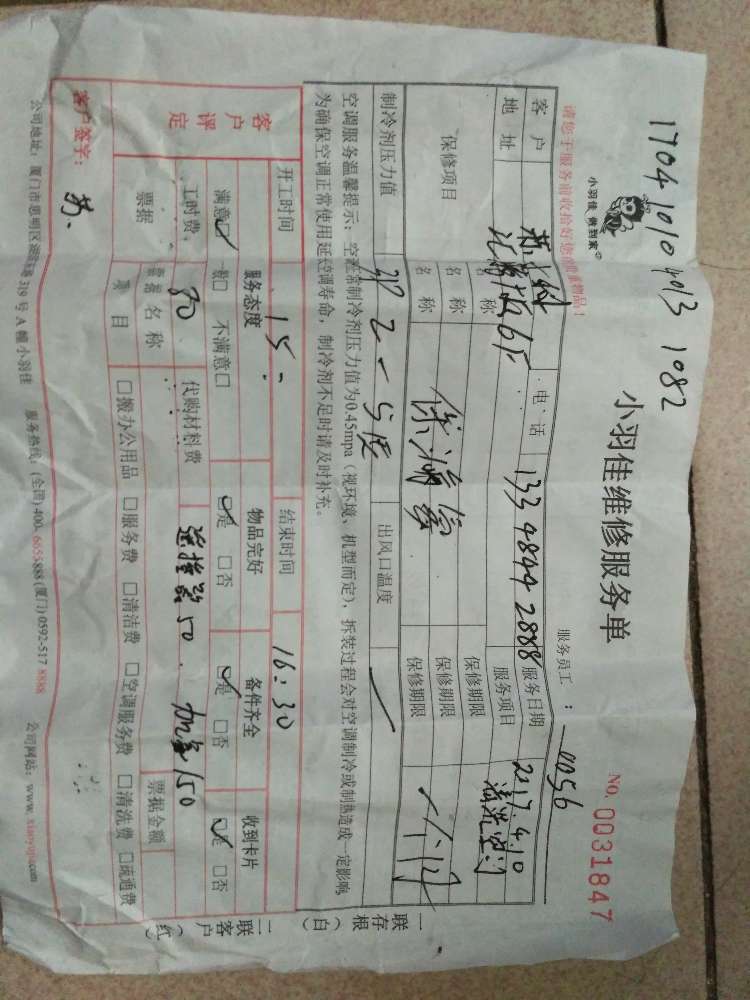 1704 1010 4013 1082
小羽佳 做到家
小羽佳维修服务单
NO. 0031847
请您于服务前收拾好您的贵重物品！
服务员工：0056
客户
电话 13348442888
服务日期 2017.4.10
地址
服务项目 清洗空调
保修项目
名称
保修期限
名称
保修期限
名称
保修期限
制冷剂压力值
出风口温度
空调服务温馨提示：空调正常制冷剂压力值为0.45mpa（视环境、机型而定），拆装过程会对空调制冷或制热造成一定影响
为确保空调正常使用延长空调寿命，制冷剂不足时请及时补充。
开工时间 15
结束时间 16:30
客户评定
服务态度
物品完好
备件齐全
收到卡片
满意☑ 一般□ 不满意□
☑是 □否
☑是 □否
☑是 □否
工时费 80
代购材料费 遥控器50. 加氟150
票据
票据名称
票据金额
项目
□搬办公用品 □服务费 □清洁费 □空调服务费 □清洗费 □疏通费
客户签字：
一联存根（白）
二联客户（红）
公司地址：厦门市思明区 319号A幢小羽佳 服务热线：(全国) 400-6055888 (厦门) 0592-517 8888 公司网站：www.xiaoyujia.com